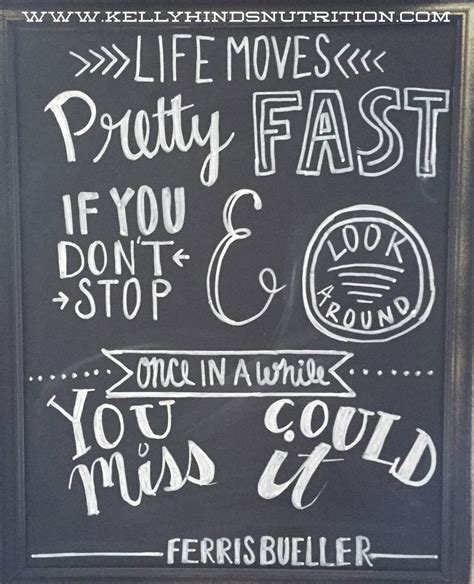 WWW.KELLYHINDSNUTRITION.COM
LIFE MOVES
Pretty FAST
IF YOU
DON'T
STOP
&
LOOK
AROUND
ONCE IN A WHILE
YOU COULD
miss it
FERRIS BUELLER